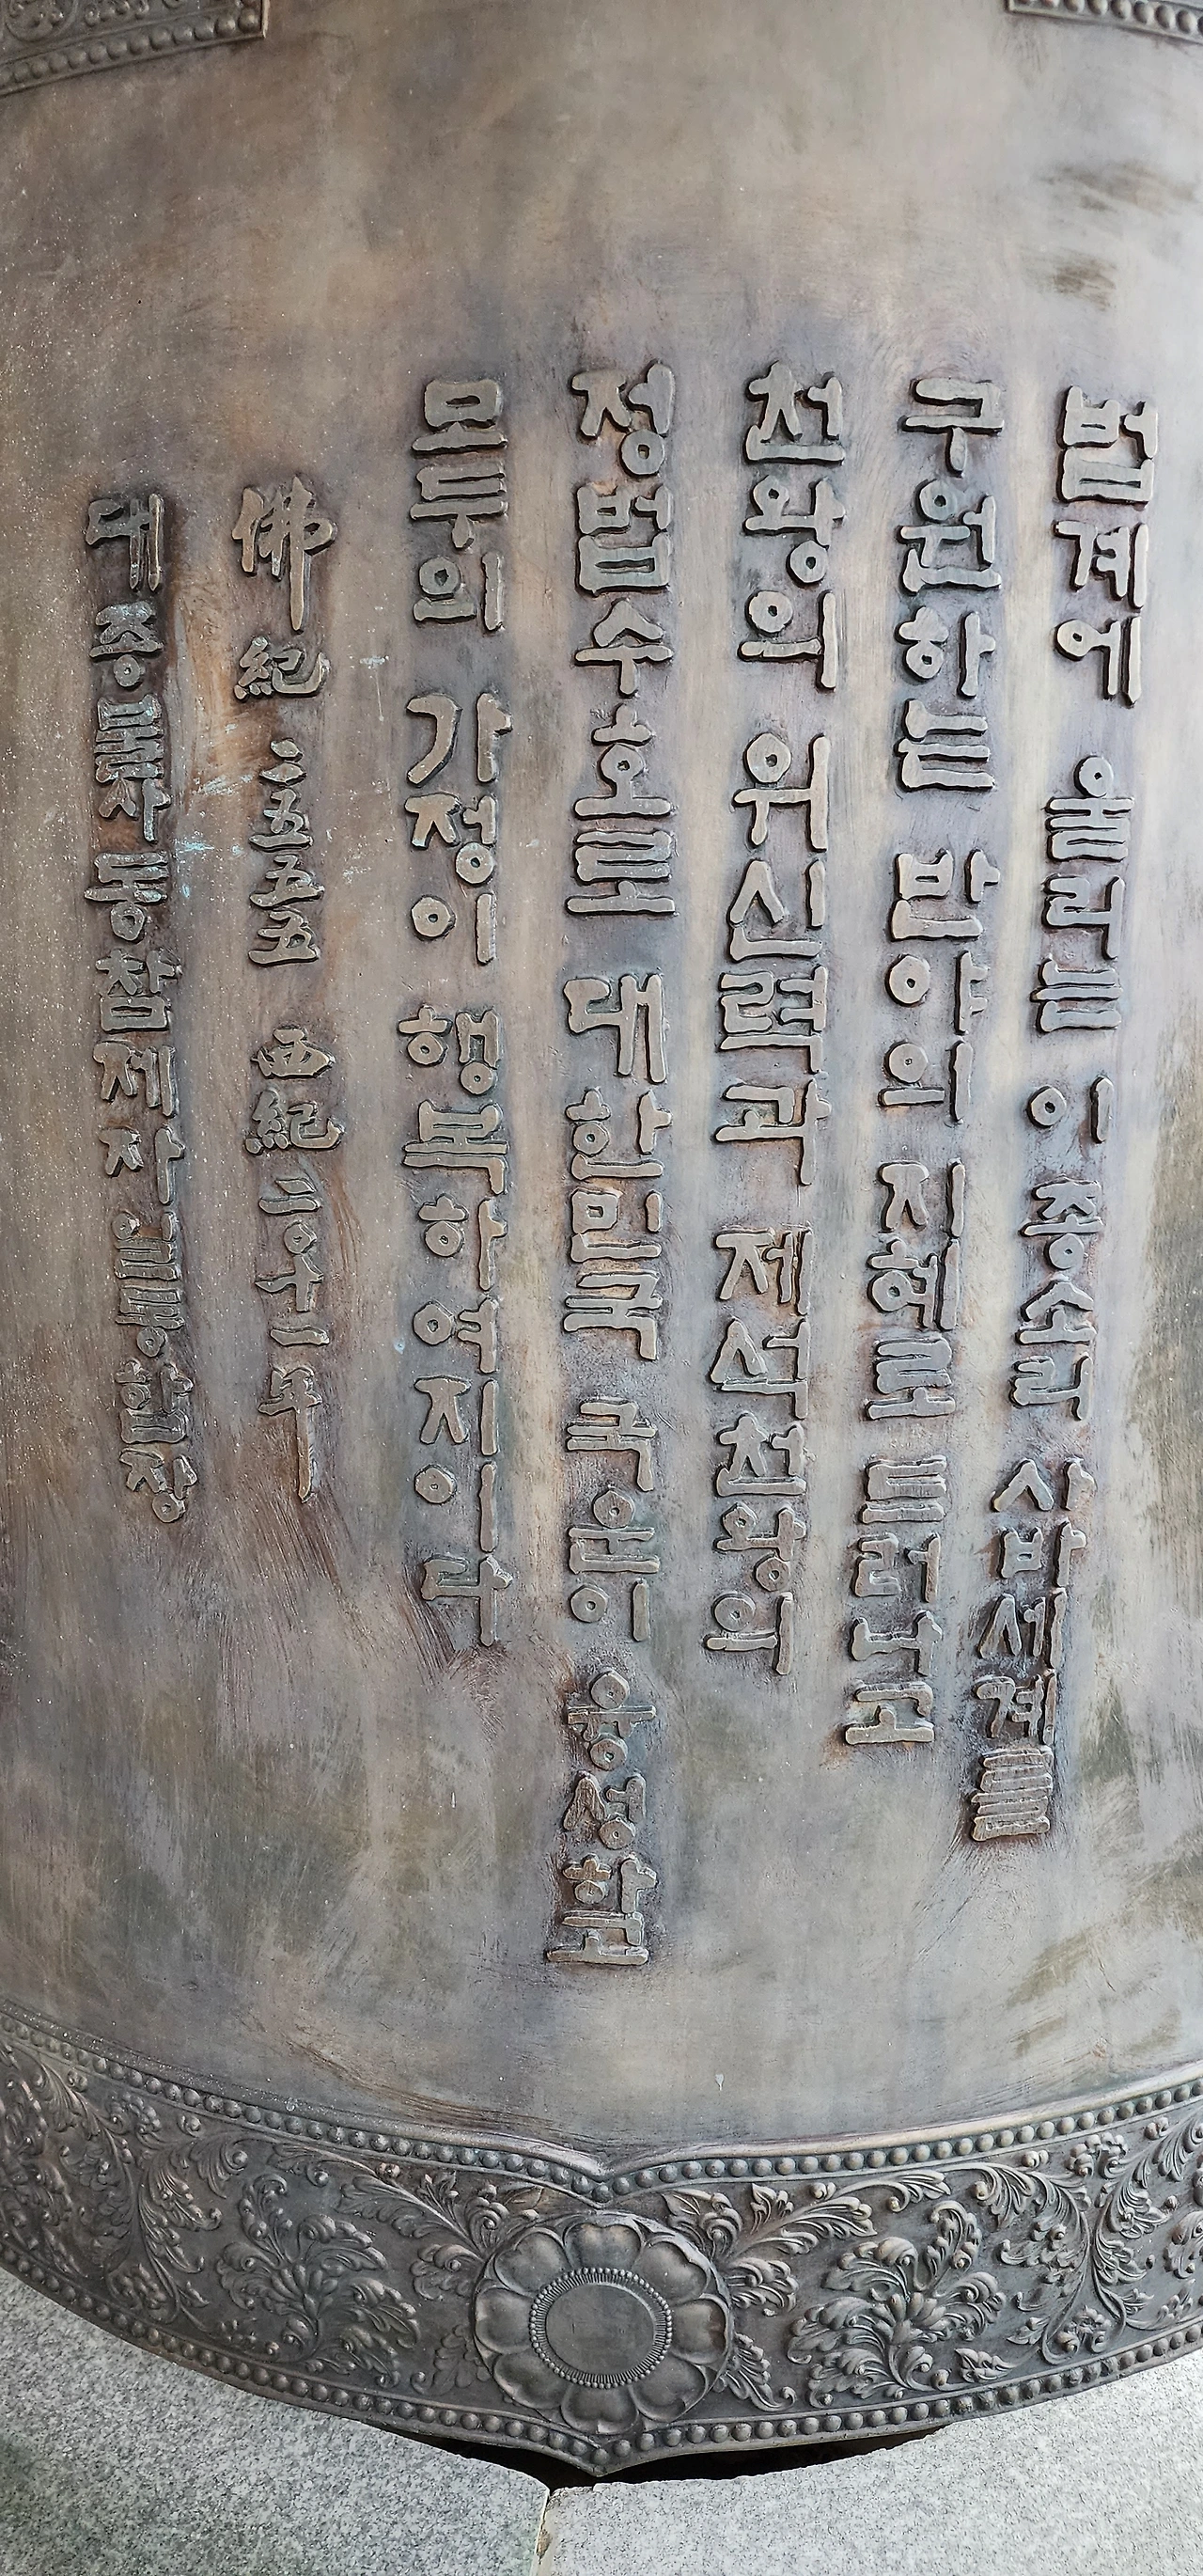 법계에 울리는 이 종소리 사바세계를
구원하는 반야의 지혜로 드러나고
천왕의 위신력과 제석천왕의
정법수호로 대한민국 국운이 융성하고
모두의 가정이 행복하여지이다
佛紀 二五五五 西紀 二〇十一年
대종불사 동참제자 일동합장